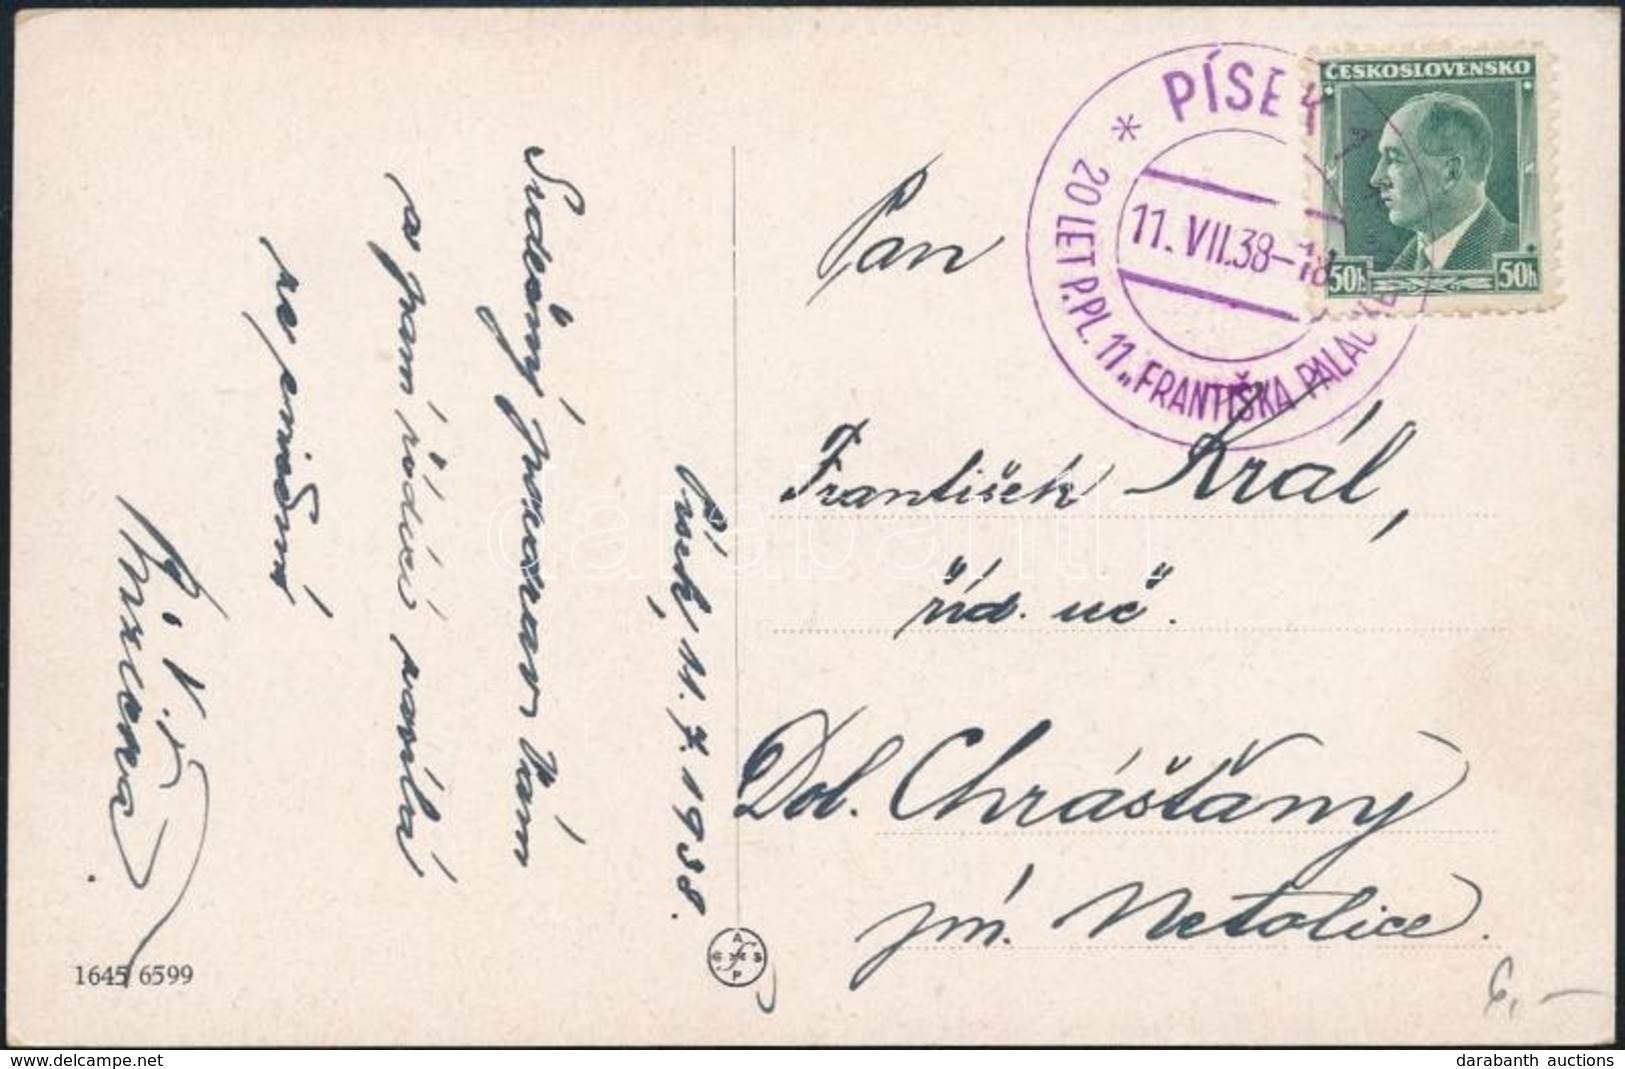 PÍSEK
* 20 LET P.PL. 11 „FRANTIŠKA PALAC
11. VII.38–18
ČESKOSLOVENSKO
50h 50h
Pan
František Král,
říd. uč.
Dol. Chrášťany
p. Netolice.
Písek, 11. 7. 1938.
Srdečný pozdrav Vám
a paní řídící
1645 6599
A
P
6,–
darabanth
delcampe.net
darabanth auctions